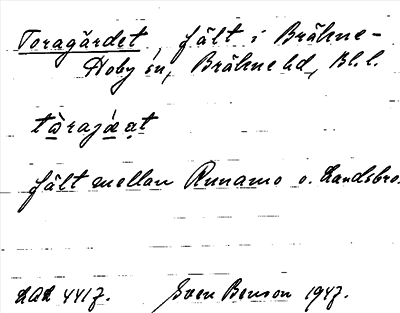 Toragärdet, fält i Bräkne-
Hoby sn, Bräkne hd, Bl. l.
fält mellan Runamo o. Landsbro.
LAL 4417. Sven Benson 1947.